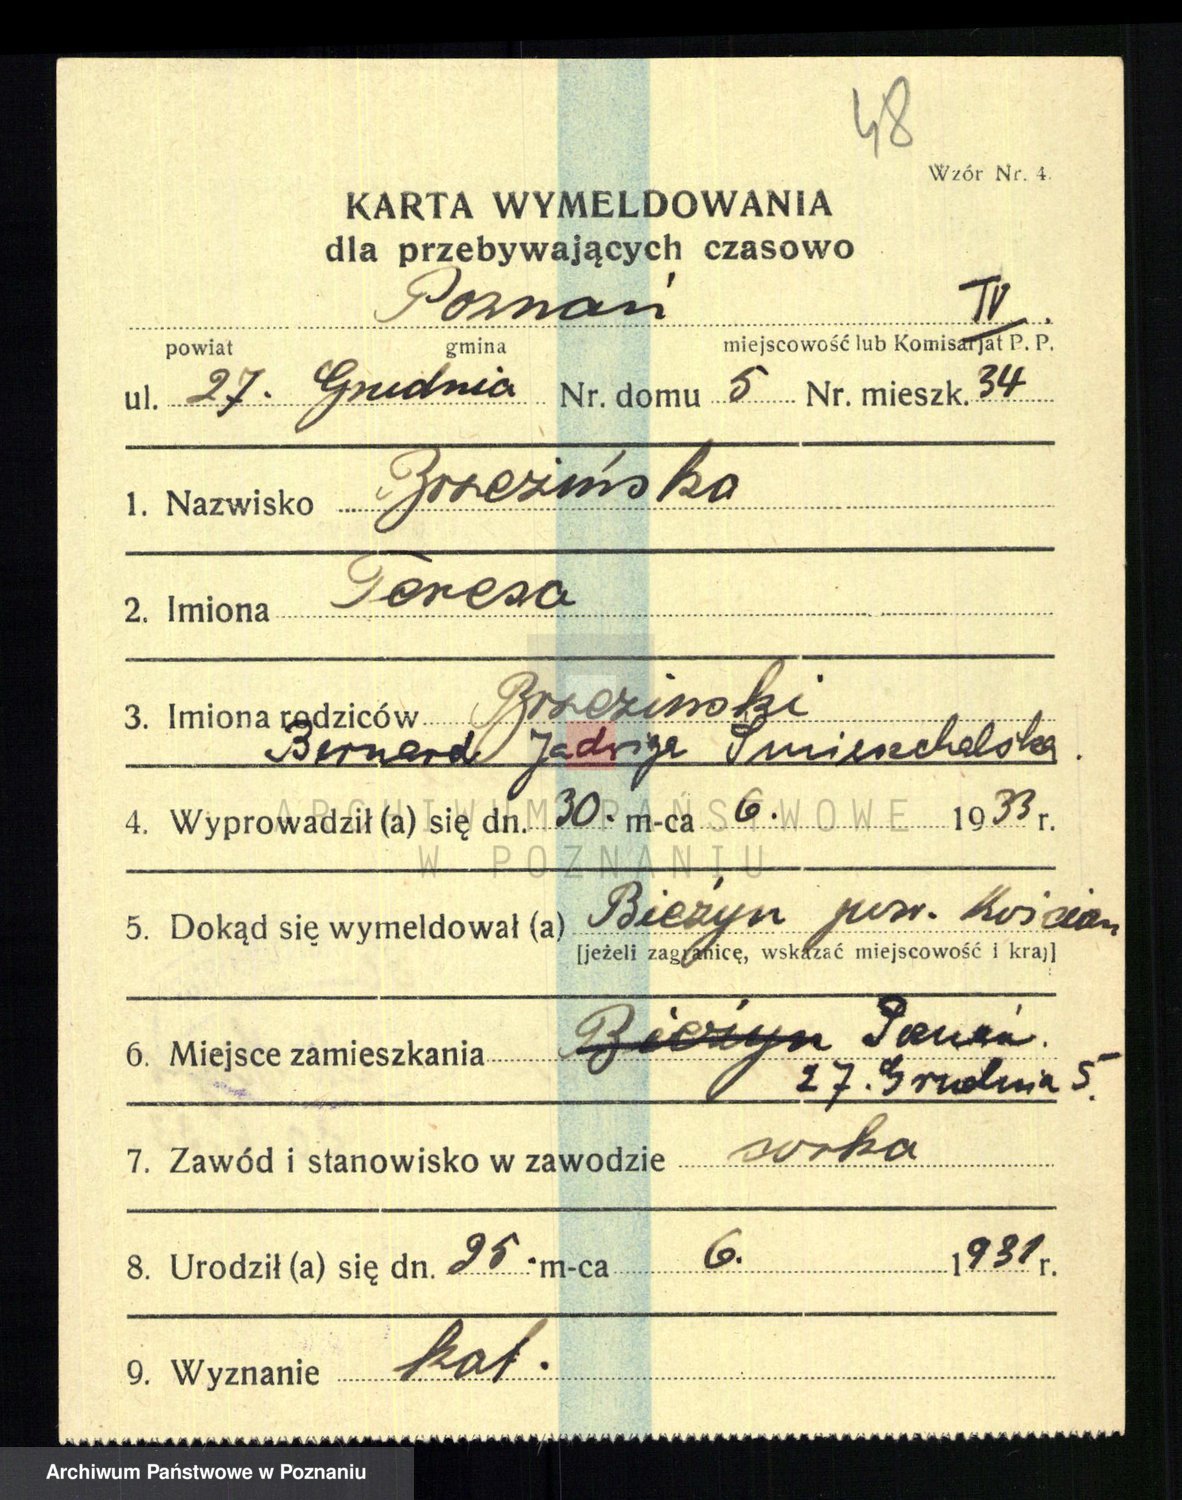 48
Wzór Nr. 4.
KARTA WYMELDOWANIA
dla przebywających czasowo
Poznań IV.
powiat gmina miejscowość lub Komisarjat P. P.
ul. 27. Grudnia Nr. domu 5 Nr. mieszk. 34
1. Nazwisko Brzezińska
2. Imiona Teresa
3. Imiona rodziców Brzezinski
Bernard Jadwiga
4. Wyprowadził (a) się dn. 30. m-ca 6. 1933 r.
ARCHIWUM PAŃSTWOWE
W POZNANIU
5. Dokąd się wymeldował (a) Bieżyn pow. Kościan
[jeżeli zagranicę, wskazać miejscowość i kraj]
6. Miejsce zamieszkania Bieżyn Poznań.
27. Grudnia 5.
7. Zawód i stanowisko w zawodzie corka
8. Urodził (a) się dn. 25. m-ca 6. 1931 r.
9. Wyznanie kat.
Archiwum Państwowe w Poznaniu